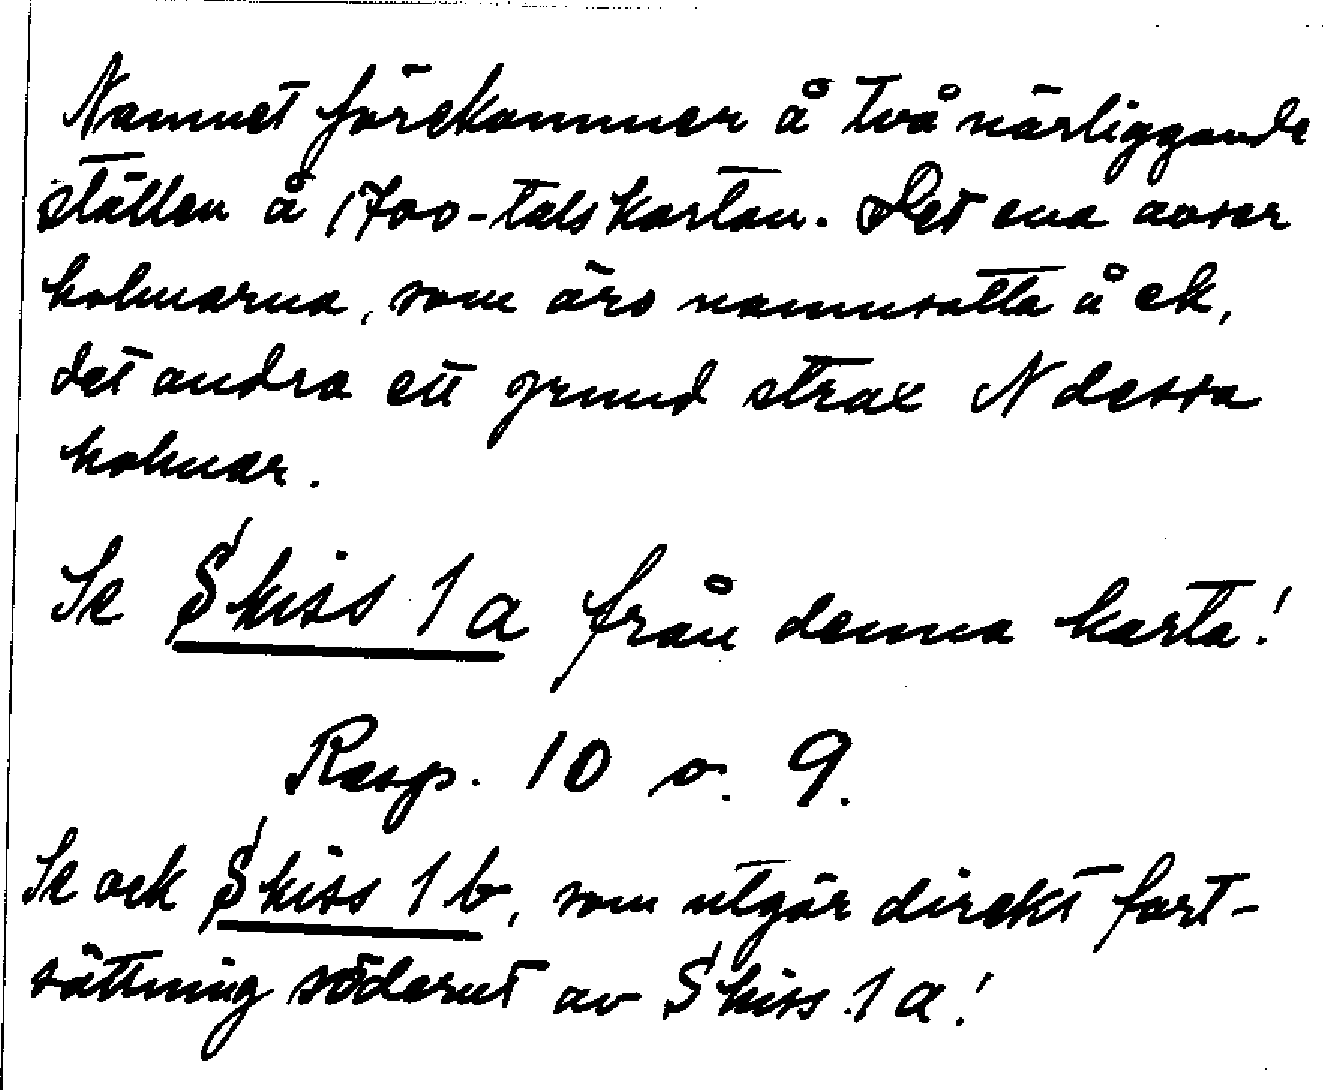 Namnet förekommer å två närliggande
ställen å 1700-talskartan. Det ena avser
holmarna, som äro namnsatta å ek,
det andra ett grund strax N dessa
holmar.
Se Skiss 1a från denna karta!
Resp. 10 o. 9.
Se ock Skiss 1b, som utgör direkt fort-
sättning söderut av Skiss 1a!